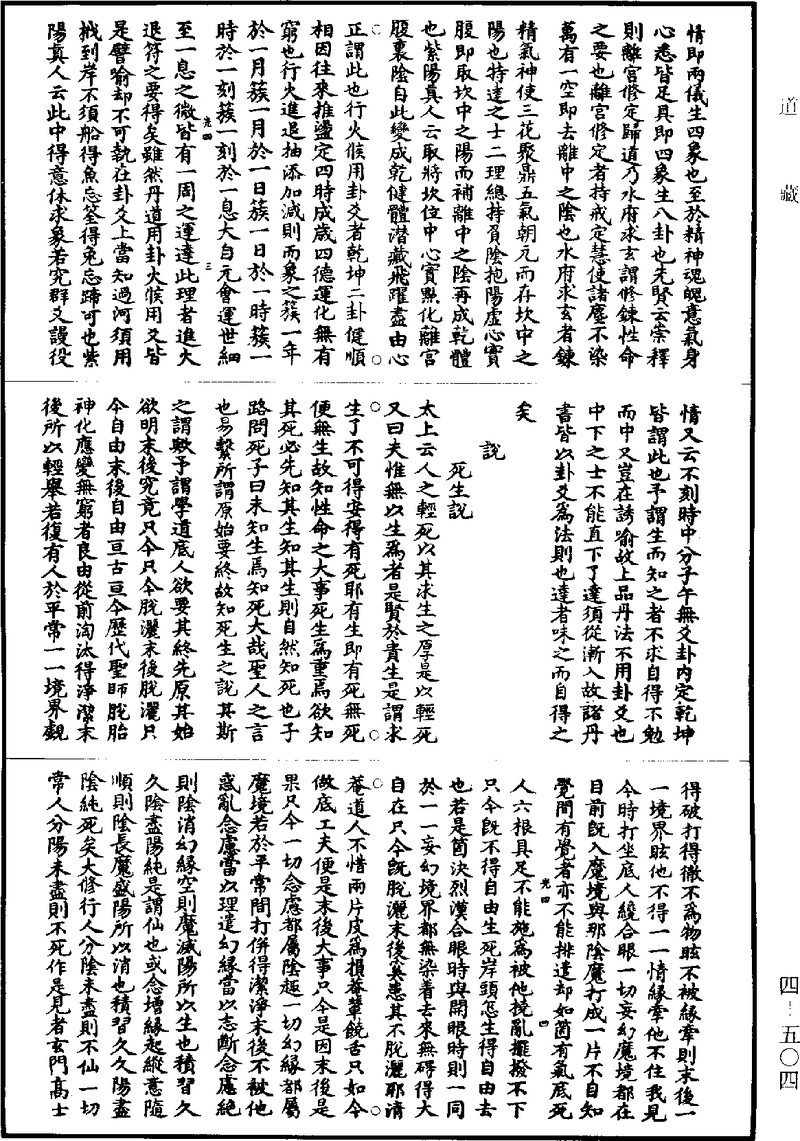 道藏
情即兩儀生四象也至於精神魂魄意氣身
心悉皆足具即四象生八卦也先賢云崇釋
則離宮修定歸道乃水府求玄謂修鍊性命
之要也離宮修定者持戒定慧使諸塵不染
萬有一空即去離中之陰也水府求玄者鍊
精氣神使三花聚鼎五氣朝元而存坎中之
陽也特達之士二理總持負陰抱陽虛心實
腹即取坎中之陽而補離中之陰再成乾體
也紫陽真人云取將坎位中心實點化離宮
腹裏陰自此變成乾健體潛藏飛躍盡由心
正謂此也行火候用卦爻者乾坤二卦健順
相因往來推盪定四時成歲四德運化無有
窮也行火進退抽添加減則而象之簇一年
於一月簇一月於一日簇一日於一時簇一
時於一刻簇一刻於一息大自元會運世細
光四 三
至一息之微皆有一周之運達此理者進火
退符之要得矣雖然丹道用卦火候用爻皆
是譬喻却不可執在卦爻上當知過河須用
栰到岸不須船得魚忘筌得兔忘蹄可也紫
陽真人云此中得意休求象若究群爻謾役
情又云不刻時中分子午無爻卦內定乾坤
皆謂此也予謂生而知之者不求自得不勉
而中又豈在誘喻故上品丹法不用卦爻也
中下之士不能直下了達須從漸入故諸丹
書皆以卦爻為法則也達者味之而自得之
矣
說
死生說
太上云人之輕死以其求生之厚是以輕死
又曰夫惟無以生為者是賢於貴生是謂求
生了不可得安得有死耶有生即有死無死
便無生故知性命之大事死生為重焉欲知
其死必先知其生知其生則自然知死也子
路問死子曰未知生焉知死大哉聖人之言
也易繫所謂原始要終故知死生之說其斯
之謂歟予謂學道底人欲要其終先原其始
欲明末後究竟只今只今脫灑末後脫灑只
今自由末後自由亘古亘今歷代聖師脫胎
神化應變無窮者良由從前淘汰得淨潔末
後所以輕舉若復有人於平常一一境界覷
得破打得徹不為物眩不被緣牽則末後一
一境界眩他不得一一情緣牽他不住我見
今時打坐底人纔合眼一切妄幻魔境都在
目前旣入魔境與那陰魔打成一片不自知
覺間有覺者亦不能排遣却如箇有氣底死
光四 四
人六根具足不能施為被他撓亂擺撥不下
只今旣不得自由生死岸頭怎生得自由去
也若是箇決烈漢合眼時與開眼時則一同
於一一妄幻境界都無染着去來無礙得大
自在只今旣脫灑末後奚患其不脫灑耶清
菴道人不惜兩片皮為損菴輩饒舌只如今
做底工夫便是末後大事只今是因末後是
果只今一切念慮都屬陰趣一切幻緣都屬
魔境若於平常間打併得潔淨末後不被他
惑亂念慮當以理遣幻緣當以志斷念慮絕
則陰消幻緣空則魔滅陽所以生也積習久
久陰盡陽純是謂仙也或念增緣起縱意隨
順則陰長魔盛陽所以消也積習久久陽盡
陰純死矣大修行人分陰未盡則不仙一切
常人分陽未盡則不死作是見者玄門高士
四-五〇四